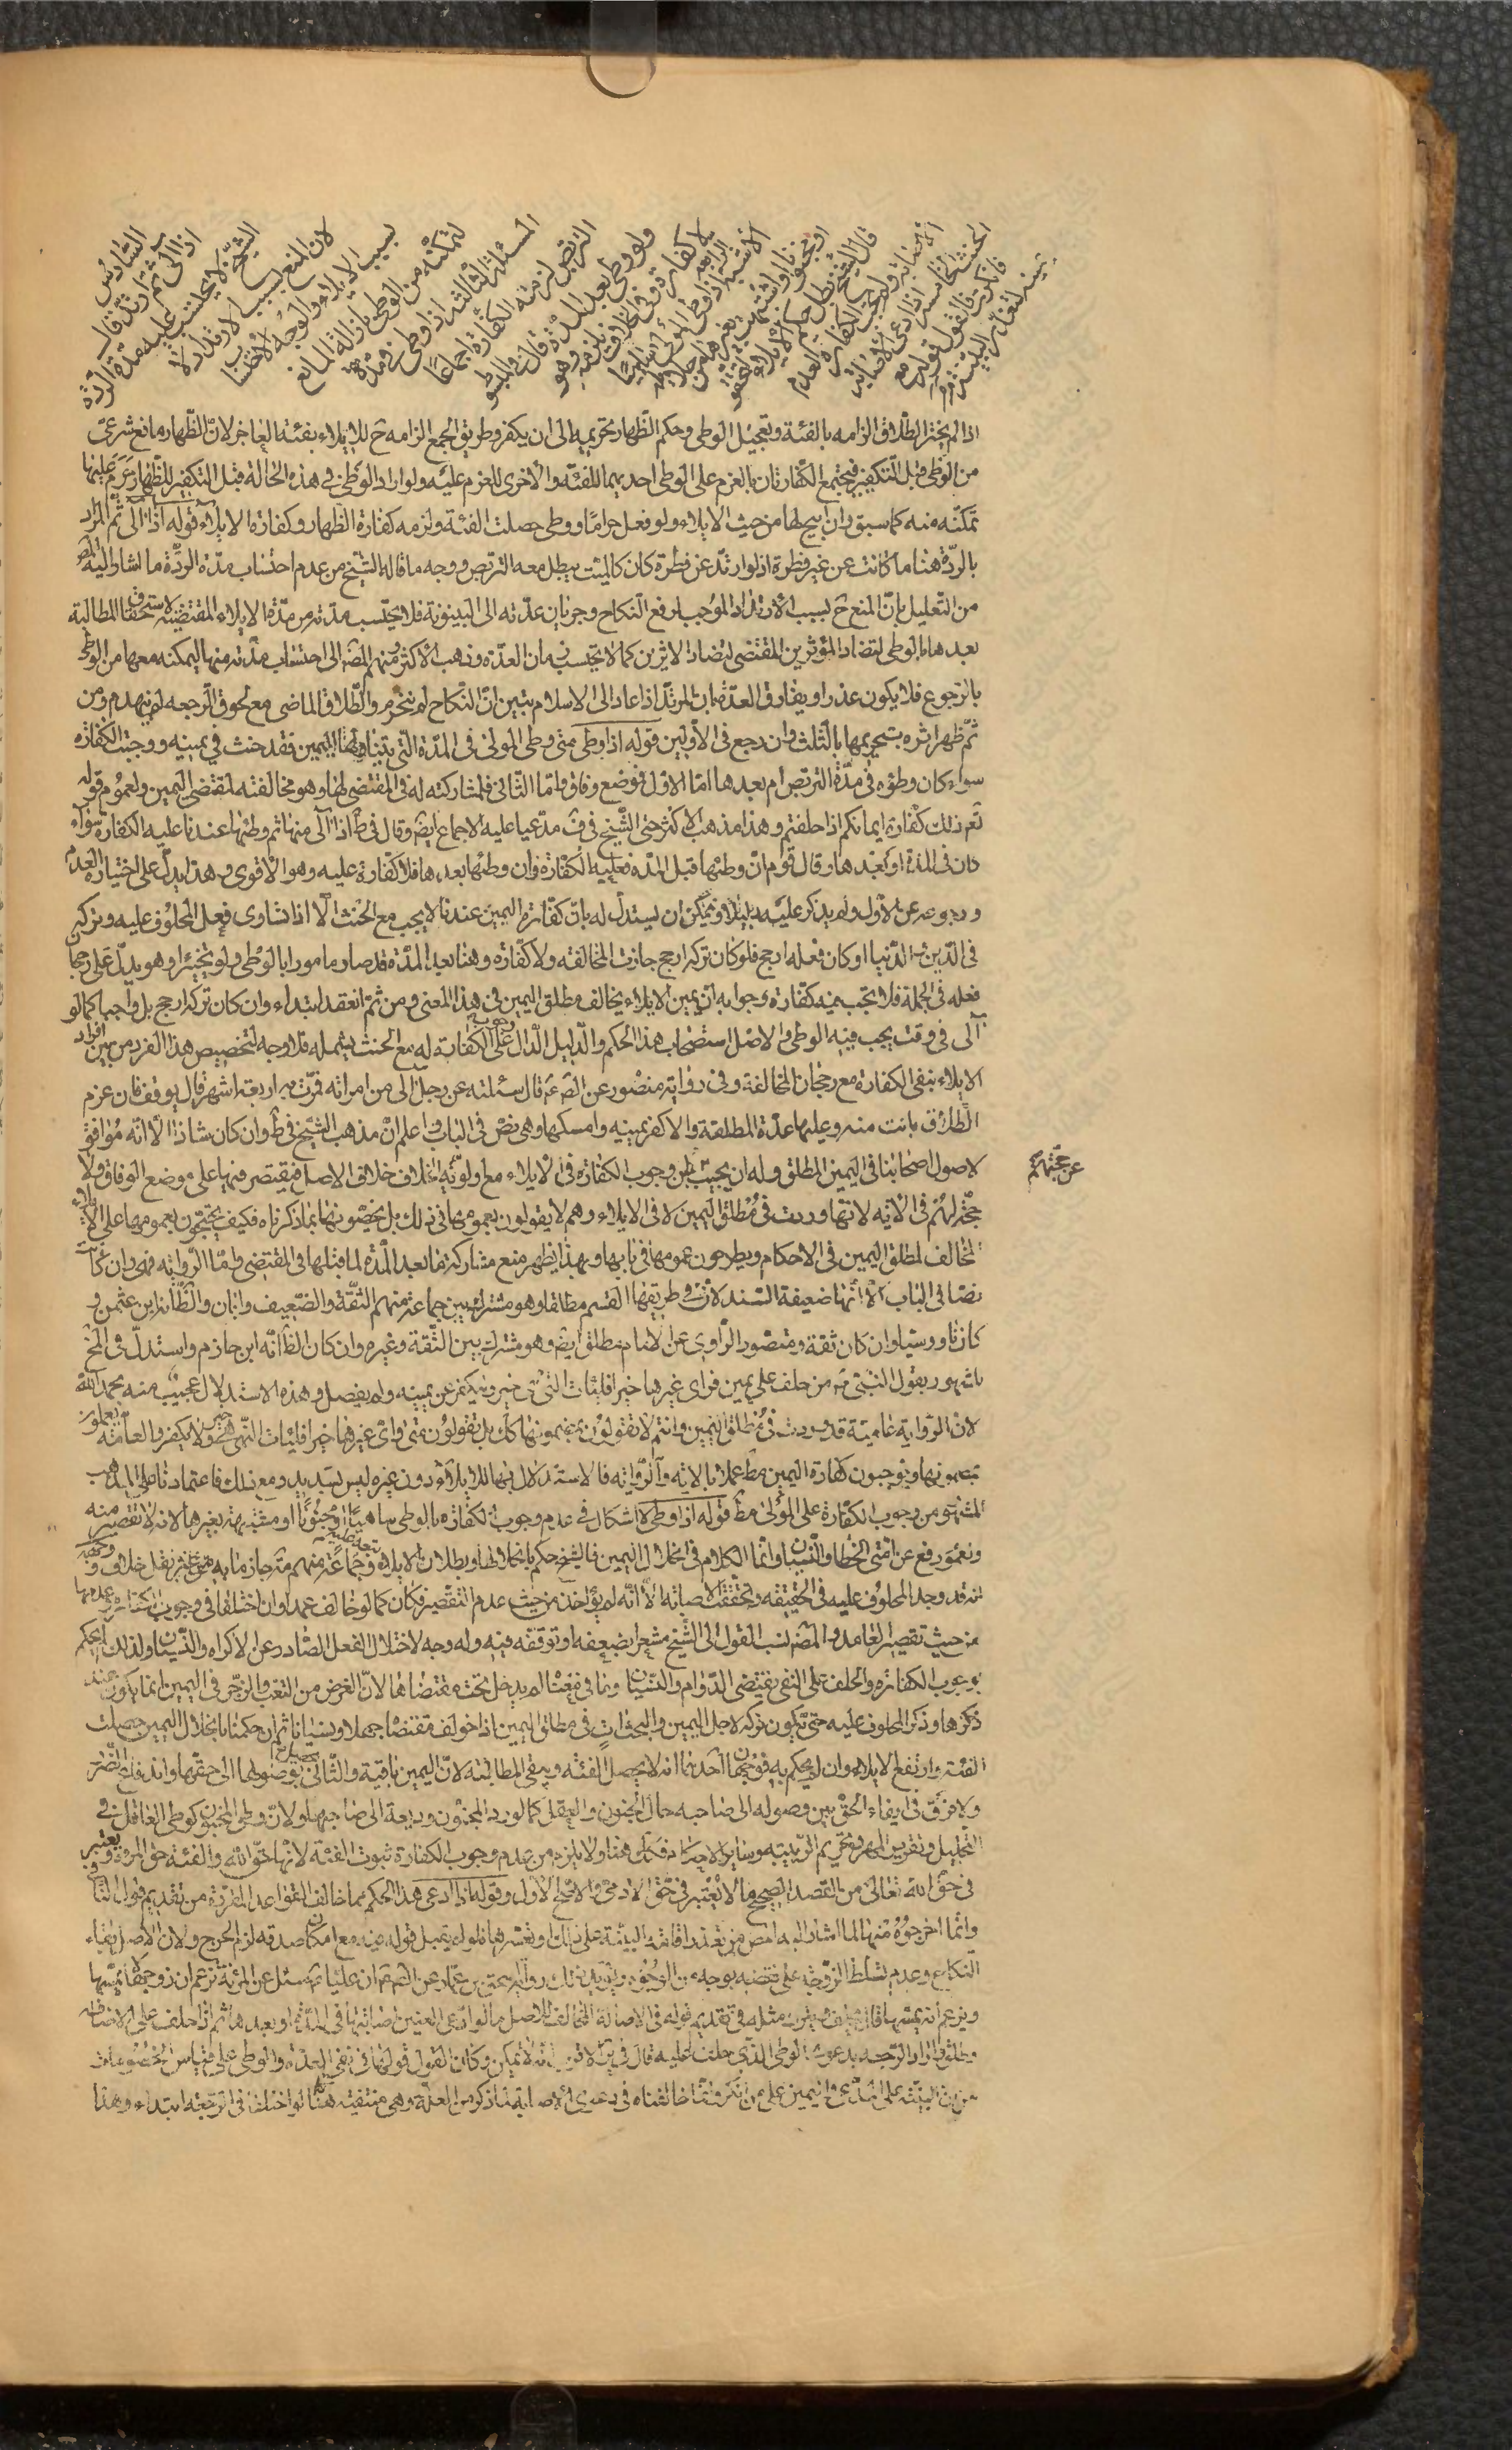 السادس
اذا آلى ثم ارتد قال
الشيخ لا يحتسب عليه مدة الردة
لان المنع بسبب الارتداد لا
بسبب الايلاء والوجه الاحتساب
لتمكنه من الوطى بازالة المانع
المسئلة الثالثة اذا وطى في مدة
التربص لزمته الكفارة اجماعا
ولو وطى بعد المدة قال في المبسوط
لا كفارة وفي الخلاف تلزمه وهو
الاشبه الرابعة اذا وطى المولى ساهيا
او مجنونا او اشتبهت بغيرها من حلائله
قال الشيخ بطل حكم الايلاء لتحقق
الاصابة ولم تجب الكفارة لعدم
الحنث الخامسة اذا ادعى الاصابة
فانكرت فالقول قوله مع
يمينه لتعذر البينة
اذا لم يختر الطلاق الزامه بالفئة وتعجيل الوطى وحكم الظهار تحريمه الى ان يكفر وطريق الجمع الزامه ح للايلاء بفئة العاجز لان الظهار مانع شرعى
من الوطى قبل التكفير فتجتمع الكفارتان بالعزم على الوطى احديهما للفئة والاخرى للعزم عليه ولو اراد الوطى في هذه الحالة قبل التكفير للظهار حرم عليها
تمكنه منه كما سبق وان ابيح لها من حيث الايلاء ولو فعل حراما ووطى حصلت الفئة ولزمه كفارة الظهار وكفارة الايلاء قوله اذا آلى ثم المراد
بالردة هنا ما كانت عن غير فطرة اذ لو ارتد عن فطرة كان كالميت يبطل معه التربص ووجه ما قاله الشيخ من عدم احتساب مدة الردة ما اشار اليه المص
من التعليل بان المنع ح بسبب الارتداد الموجب لرفع النكاح وجريان عدته الى البينونة فلا يحتسب مدته من مدة الايلاء المقتضية لاستحقاق المطالبة
بعدها بالوطى لتضاد المؤثرين المقتضى لتضاد الاثرين كما لا تحتسب زمان العدة وذهب الاكثر ومنهم المص الى احتساب مدته منها لتمكنه معها من الوطى
بالرجوع فلا يكون عذرا ويفارق العدة بان المرتد اذا عاد الى الاسلام يتبين ان النكاح لم ينخرم والطلاق الماضى مع لحوق الرجعه لم ينهدم ومن
ثم ظهر اثره بتحريمها بالثلث وان رجع في الاولين قوله اذا وطى متى وطى المولى في المدة التى تتناولها اليمين فقد حنث في يمينه ووجبت الكفاره
سواء كان وطؤه في مدة التربص ام بعدها اما الاول فوضع وفاق واما الثانى فلمشاركته له في المقتضى لها وهو مخالفته لمقتضى اليمين ولعموم قوله
تع ذلك كفارة ايمانكم اذا حلفتم وهذا مذهب الاكثر حتى الشيخ في ف مدعيا عليه الاجماع ايض وقال في ط اذا آلى منها ثم وطئها عندنا عليه الكفارة سواء
كان في المدة او بعدها وقال قوم ان وطئها قبل المدة فعليه الكفارة وان وطئها بعدها فلا كفارة عليه وهو الاقوى وهذا يدل على اختياره العدم
ورجوعه عن الاول ولم يذكر عليه دليلا ويمكن ان يستدل له بان كفارة اليمين عندنا لا يجب مع الحنث الا اذا تساوى فعل المحلوف عليه وتركه
في الدين والدنيا او كان فعله ارجح فلو كان تركه ارجح جازت المخالفة ولا كفارة وهنا بعد المدة قد صار مامورا بالوطى ولو تخييرا وهو يدل على رجحان
فعله في الجملة فلا يجب بيمينه كفارة وجوابه ان يمين الايلاء يخالف مطلق اليمين في هذا المعنى ومن ثم انعقد ابتداء وان كان تركه ارجح بل واجبا كما لو
آلى في وقت يجب فيه الوطى والاصل استصحاب هذا الحكم والدليل الدال على وجوب الكفارة له مع الحنث يشمله فلا وجه لتخصيص هذا الفرد من بين افراد
الايلاء بنفى الكفارة مع رجحان المخالفة وفي رواية منصور عن الص ع قال سئلته عن رجل آلى من امراته فمرت به اربعة اشهر قال يوقف فان عزم
الطلاق بانت منه وعليها عدة المطلقة والا كفر يمينه وامسكها وهى نص في الباب واعلم ان مذهب الشيخ في ط وان كان شاذا الا انه موافق
لاصول اصحابنا في اليمين المطلق وله ان يجيب بان وجوب الكفارة في الايلاء مع اولوية الخلاف خلاف الاصل فيقتصر فيها على موضع الوفاق ولا
عن حجتهم
حجة لهم في الاية لانها وردت في مطلق اليمين لا في الايلاء وهم لا يقولون بعمومها في ذلك بل يخصونها بما ذكرناه فكيف يحتجون بعمومها على الايلاء
المخالف لمطلق اليمين في الاحكام ويطرحون عمومها في بابها وبهذا يظهر منع مشاركة ما بعد المدة لما قبلها في المقتضى واما الرواية فهى وان كانت
نصا في الباب الا انها ضعيفة السند لان في طريقها القسم مطلقا وهو مشترك بين جماعة منهم الثقة والضعيف وابان والظ انه ابن عثمن و
كان ناووسيا وان كان ثقة ومنصور الراوى عن الامام مطلق ايض وهو مشترك بين الثقة وغيره وان كان الظ انه ابن حازم واستدل في المخ
للمشهور بقول النبى ص من حلف على يمين فراى غيرها خيرا فليات التى هى خير وليكفر عن يمينه ولم يفصل وهذه الاستدلال عجيب منه رحمه الله
لان الرواية عامية قد وردت في مطلق اليمين وانتم لا تقولون بمضمونها كك بل تقولون متى راى غيرها خيرا فليات التى هى خير ولا يكفر والعامة يعملون
بمضمونها ويوجبون كفارة اليمين مط عملا بالاية والرواية فالاستدلال بها للايلاء دون غيره ليس بسديد ومع ذلك فاعتمادنا على المذهب
المشهور من وجوب الكفارة على المولى مط قوله اذا وطى لا اشكال في عدم وجوب الكفاره بالوطى ساهيا او مجنونا او مشتبهة بغيرها لانه لا تقصير منه
ولعموم رفع عن امتى الخطا والنسيان وانما الكلام في انحلال اليمين فالشيخ حكم بانحلالها وبطلان الايلاء وتبعه عليه جماعة منهم ير جازما به من غير نقل خلاف ووجهه
انه قد وجد المحلوف عليه في الحقيقه وتحققت الاصابة الا انه لم يؤاخذ من حيث عدم التقصير فكان كما لو خالف عمدا وان اختلفا في وجوب الكفارة وعدمها
من حيث تقصير العامد والمص نسب القول الى الشيخ مشعرا بضعفه او توقفه فيه وله وجه لاختلال الفعل الصادر عن الاكراه والنسيان ولذلك لم يحكم
بوجوب الكفاره والحلف على النفى يقتضى الدوام والنسيان وما في معناه لم يدخل تحت مقتضاها لان الغرض من البعث والزجر في اليمين انما يكون عند
ذكرها وذكر المحلوف عليه حتى يكون تركه لاجل اليمين والبحث آت في مطلق اليمين اذا خولف مقتضاها جهلا او نسيانا ثم ان حكمنا بانحلال اليمين حصلت
الفئة وارتفع الايلاء وان لم يحكم به فوجهان احدهما انه لا يحصل الفئة ويبقى المطالبة لان اليمين باقية والثانى يحصل لوصولها الى حقها واندفاع الضرر
ولا فرق في ايفاء الحق بين وصوله الى صاحبه حال الجنون والعقل كما لو رد المجنون وديعة الى صاحبها ولان وطى المجنون كوطى العاقل في
التحليل وتقرير المهر وتحريم الربيبة وساير الاحكام فكك هنا ولا يلزم من عدم وجوب الكفارة ثبوت الفئة لانها حق الله والفئة حق المرءة ويعتبر
في حق الله تعالى من القصد الصحيح ما لا يعتبر في حق الادمى والاصح الاول وقوله اذا ادعى هذا الحكم مما خالف القواعد المقررة من تقديم قول النافى
وانما اخرجوه منها لما اشار اليه المص من تعذر اقامة البينة على ذلك او تعسرها فلو لم يقبل قوله فيه مع امكان صدقه لزم الحرج ولان الاصل بقاء
النكاح وعدم تسلط الزوجة على نقضه بوجه من الوجوه ويؤيد ذلك رواية اسحق بن عمار عن الص ع ان عليا ع سئل عن المرءة تزعم ان زوجها لا يمسها
ويزعم انه يمسها قال يحلف ويترك ومثله في تقديم قوله في الاصابة المخالف للاصل ما لو ادعى العنين اصابتها في المدة او بعدها ثم اذا حلف على الاصابة
وطلق واراد الرجعه بدعوى الوطى الذى حلف عليه قال في ير لا يمكن وكان القول قولها في نفى العدة والوطى على قياس الخصومات
من ان البينة على المدعى واليمين على من انكر وانما خالفناه في دعوى الاصابة لما ذكر من العلة وهى منتفية هنا كما لو اختلفا في الرجعة ابتداء وهذا